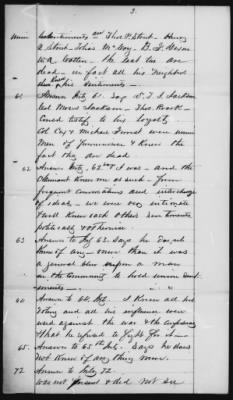 3.
sentiments and Thos. P. Stout - Henry
A Stout - John M. McCoy. D. F.
W. A. Cotten. The last two are
dead - in fact all his neighbors
his sentiments
61 Answer Inty 61. Says T. J. Jackson
Col Moses Jackson - Thos. Brook
Could testify to his loyalty
Col Coy & Michael Forrest were union
men of prominence & knew the
fact they are dead
62 Answer Inty. 62nd I was - and the
Claimant knew me as such - from
frequent conversations and interchange
of ideas - we were very intimate
& well knew each others sentiments
politically & otherwise
63 Answer to Inty 63. Says he do not
know of any - more than it was
a general blow upon a man
in the community to hold union sent-
iments -
64 Answer to 64 Inty. I know all his
voting and all his influence were
used against the war & the confederacy
that he refused to fight for it -
65. Answer to 65th Inty. Says he does
not know of any thing more.
72 Answer to Inty 72
was not present & did not see